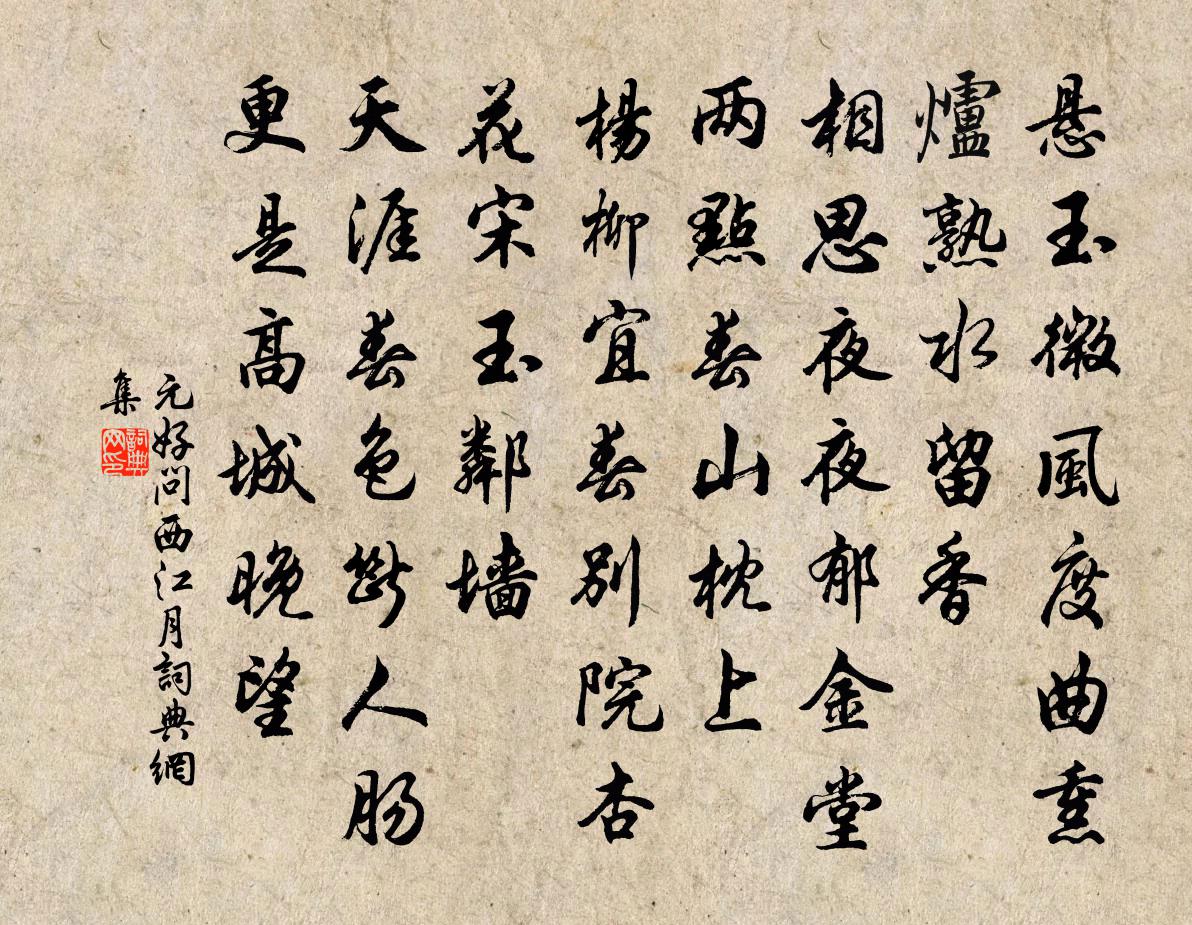 悬玉微風度曲熏
爐熟水留香
相思夜夜郁金堂
两點春山枕上
楊柳宜春别院杏
花宋玉鄰墙
天涯春色斷人肠
更是高城晚望
元好问西江月詞典網
集
詞典網印